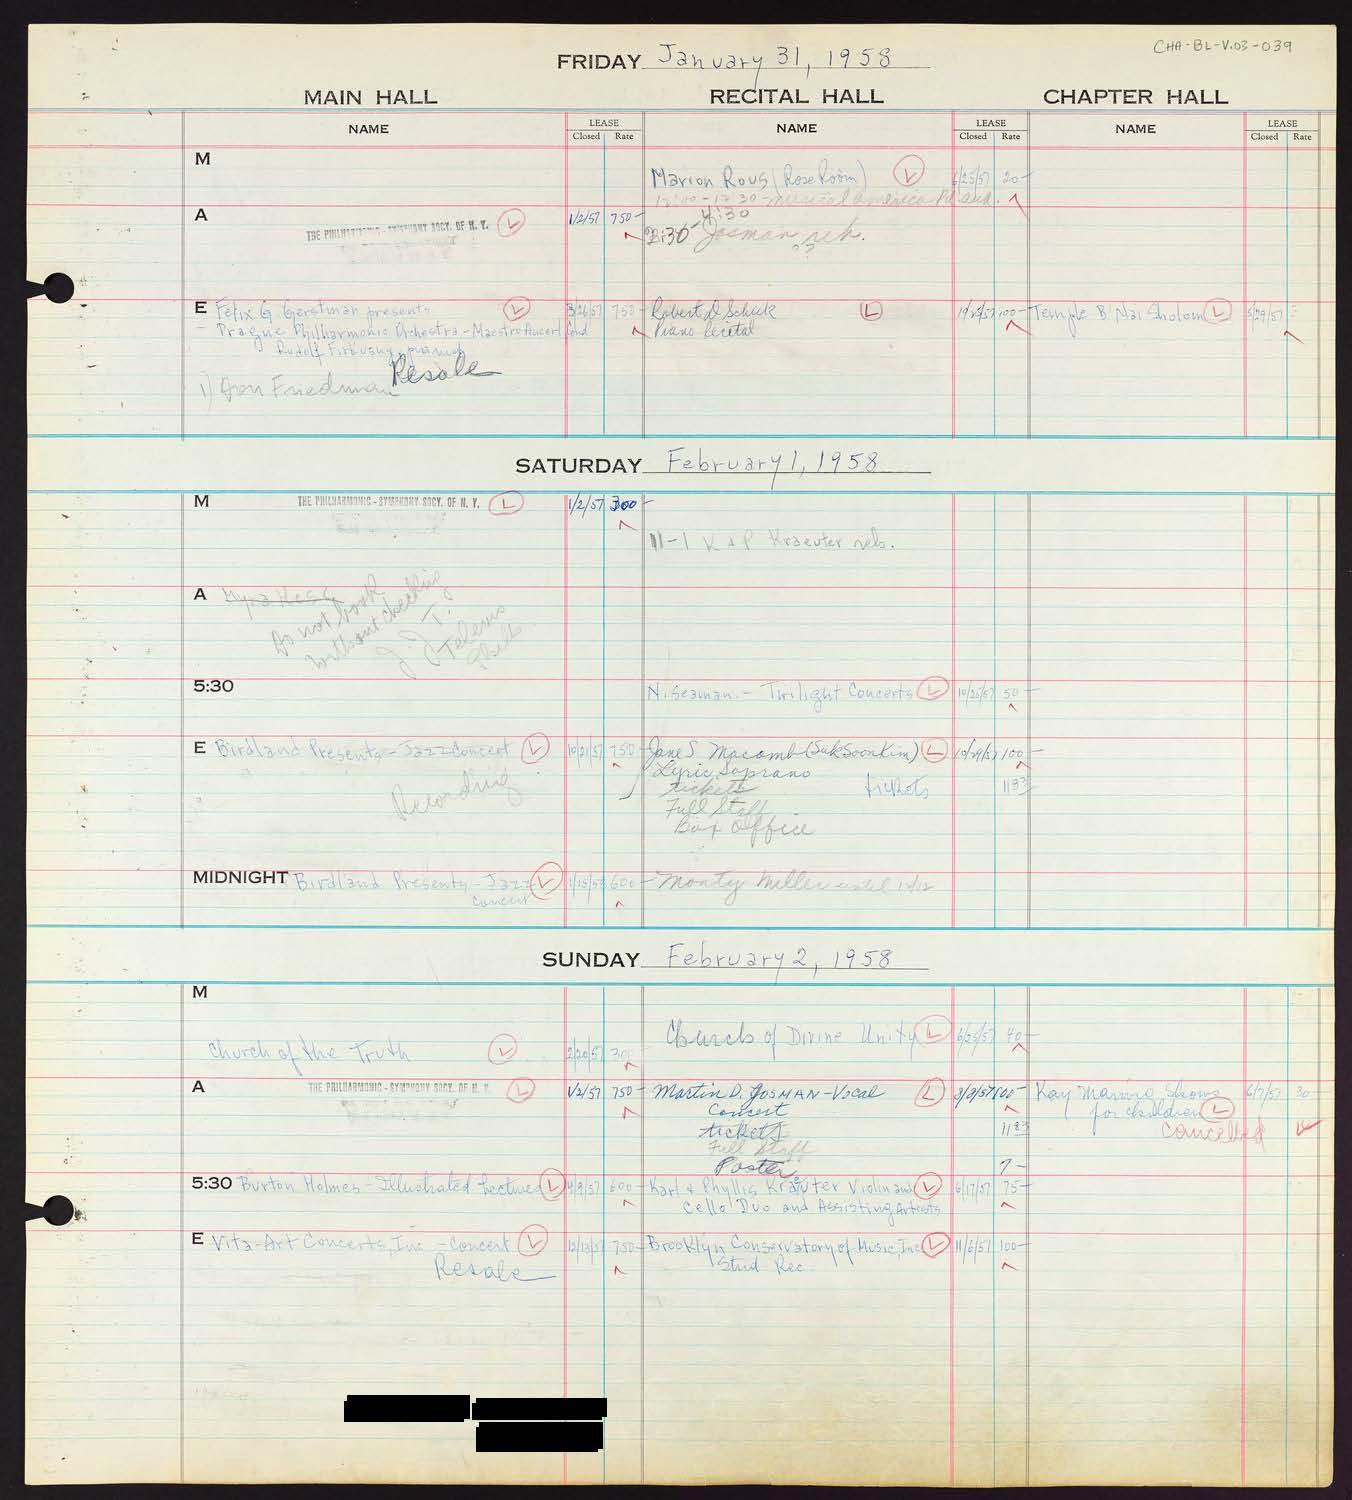 CHA-BL-V.03-039
FRIDAY January 31, 1958
MAIN HALL RECITAL HALL CHAPTER HALL
NAME LEASE Closed Rate NAME LEASE Closed Rate NAME LEASE Closed Rate
M
Marion Rous (Rose Room) L 6/25/57 20-
12:00-12:30 musical america
A
THE PHILHARMONIC-SYMPHONY SOCY. OF N. Y. L 1/2/57 750-
2:30-4:30 Josman reh.
E Felix G. Gerstman presents L 3/26/57 750- Robert D Schick L 100- Temple B'Nai Sholom L 5/29/57
Prague Philharmonic Orchestra-Maestro Ancerl Cond Piano Recital
Rudolf Firkusny, pianist
Resale
1) Friedman
SATURDAY February 1, 1958
M THE PHILHARMONIC-SYMPHONY SOCY. OF N. Y. L 1/2/57 300-
11-1 K & P Kraeuter reh.
A Myra Hess
Do not book
without checking
J. T.
5:30 N. Seaman - Twilight Concerts L 10/25/57 50-
E Birdland Presents-Jazz Concert L 10/21/57 750- Jane S Macomb (Suk Soon Kim) L 10/29/57 100-
Lyric Soprano
Recording tickets tickets 11 83
Full Staff
Box Office
MIDNIGHT Birdland Presents-Jazz L 600- Monty Miller until 12/12
Concert
SUNDAY February 2, 1958
M
Church of Divine Unity L 6/25/57 40-
Church of the Truth L 2/20/57
A THE PHILHARMONIC-SYMPHONY SOCY. OF N. Y. L 1/2/57 750- Martin D. JOSMAN-Vocal L 100- Kay Manning Shows 6/7/57 30
Concert for children L
tickets 11 83 cancelled
Full Staff
Poster 7-
5:30 Burton Holmes-Illustrated Lecture L 4/9/57 600- Karl & Phyllis Kraeuter Violin and L 6/17/57 75-
Cello Duo and Assisting Artists
E Vita-Art Concerts, Inc - Concert L 12/13/57 750- Brooklyn Conservatory of Music, Inc L 11/6/57 100-
Resale Stud Rec.